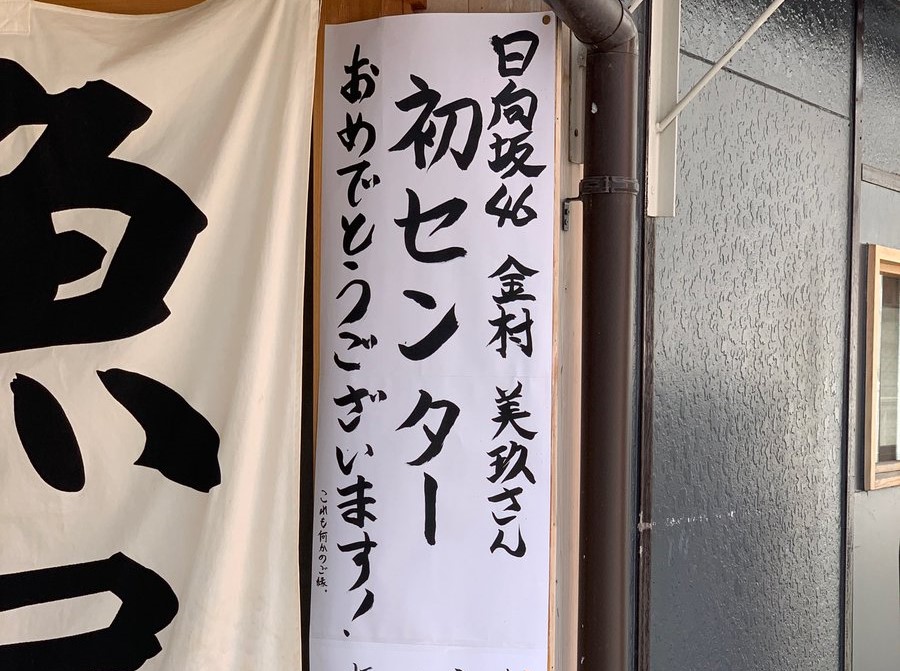 日向坂46 金村 美玖さん
初センター
おめでとうございます!
これも何かのご縁。
魚